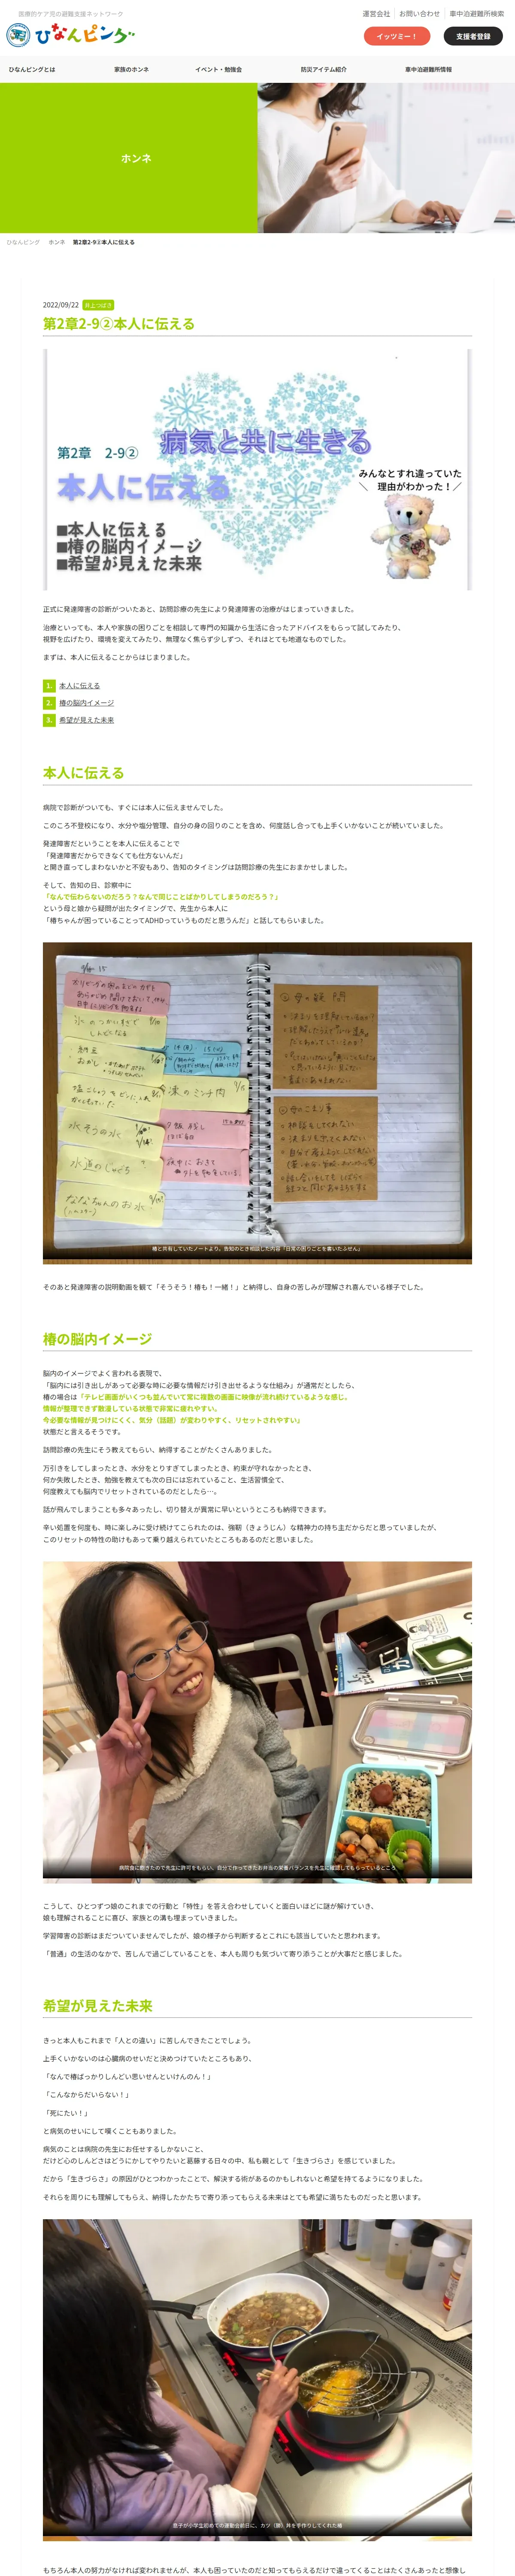 医療的ケア児の避難支援ネットワーク
ひなんピング
運営会社
お問い合わせ
車中泊避難所検索
イッツミー！
支援者登録
ひなんピングとは
家族のホンネ
イベント・勉強会
防災アイテム紹介
車中泊避難所情報
ホンネ
ひなんピング
ホンネ
第2章2-9②本人に伝える
2022/09/22
井上つばさ
第2章2-9②本人に伝える
病気と共に生きる
第2章　2-9②
本人に伝える
みんなとすれ違っていた
＼　理由がわかった！／
■本人に伝える
■椿の脳内イメージ
■希望が見えた未来
正式に発達障害の診断がついたあと、訪問診療の先生により発達障害の治療がはじまっていきました。
治療といっても、本人や家族の困りごとを相談して専門の知識から生活に合ったアドバイスをもらって試してみたり、
視野を広げたり、環境を変えてみたり、無理なく焦らず少しずつ、それはとても地道なものでした。
まずは、本人に伝えることからはじまりました。
1. 本人に伝える
2. 椿の脳内イメージ
3. 希望が見えた未来
本人に伝える
病院で診断がついても、すぐには本人に伝えませんでした。
このころ不登校になり、水分や塩分管理、自分の身の回りのことを含め、何度話し合っても上手くいかないことが続いていました。
発達障害だということを本人に伝えることで
「発達障害だからできなくても仕方ないんだ」
と開き直ってしまわないかと不安もあり、告知のタイミングは訪問診療の先生におまかせしました。
そして、告知の日、診察中に
「なんで伝わらないのだろう？なんで同じことばかりしてしまうのだろう？」
という母と娘から疑問が出たタイミングで、先生から本人に
「椿ちゃんが困っていることってADHDっていうものだと思うんだ」と話してもらいました。
椿と共有していたノートより。告知のとき相談した内容「日常の困りごとを書いたふせん」
そのあと発達障害の説明動画を観て「そうそう！椿も一緒！」と納得し、自身の苦しみが理解され喜んでいる様子でした。
椿の脳内イメージ
脳内のイメージでよく言われる表現で、
「脳内には引き出しがあって必要な時に必要な情報だけ引き出せるような仕組み」が通常だとしたら、
椿の場合は「テレビ画面がいくつも並んでいて常に複数の画面に映像が流れ続けているような感じ。
情報が整理できず散漫している状態で非常に疲れやすい。
今必要な情報が見つけにくく、気分（話題）が変わりやすく、リセットされやすい」
状態だと言えるそうです。
訪問診療の先生にそう教えてもらい、納得することがたくさんありました。
万引きをしてしまったとき、水分をとりすぎてしまったとき、約束が守れなかったとき、
何か失敗したとき、勉強を教えても次の日には忘れていること、生活習慣全て、
何度教えても脳内でリセットされているのだとしたら…。
話が飛んでしまうことも多々あったし、切り替えが異常に早いというところも納得できます。
辛い処置を何度も、時に楽しみに受け続けてこられたのは、強靭（きょうじん）な精神力の持ち主だからだと思っていましたが、
このリセットの特性の助けもあって乗り越えられていたところもあるのだと思いました。
病院食に飽きたので先生に許可をもらい、自分で作ってきたお弁当の栄養バランスを先生に確認してもらっているところ
こうして、ひとつずつ娘のこれまでの行動と「特性」を答え合わせしていくと面白いほどに謎が解けていき、
娘も理解されることに喜び、家族との溝も埋まっていきました。
学習障害の診断はまだついていませんでしたが、娘の様子から判断するとこれにも該当していたと思われます。
「普通」の生活のなかで、苦しんで過ごしていることを、本人も周りも気づいて寄り添うことが大事だと感じました。
希望が見えた未来
きっと本人もこれまで「人との違い」に苦しんできたことでしょう。
上手くいかないのは心臓病のせいだと決めつけていたところもあり、
「なんで椿ばっかりしんどい思いせんといけんのん！」
「こんなからだいらない！」
「死にたい！」
と病気のせいにして嘆くこともありました。
病気のことは病院の先生にお任せするしかないこと、
だけど心のしんどさはどうにかしてやりたいと葛藤する日々の中、私も親として「生きづらさ」を感じていました。
だから「生きづらさ」の原因がひとつわかったことで、解決する術があるのかもしれないと希望を持てるようになりました。
それらを周りにも理解してもらえ、納得したかたちで寄り添ってもらえる未来はとても希望に満ちたものだったと思います。
息子が小学生初めての運動会前日に、カツ（勝）丼を手作りしてくれた椿
もちろん本人の努力がなければ変われませんが、本人も困っていたのだと知ってもらえるだけで違ってくることはたくさんあったと想像し